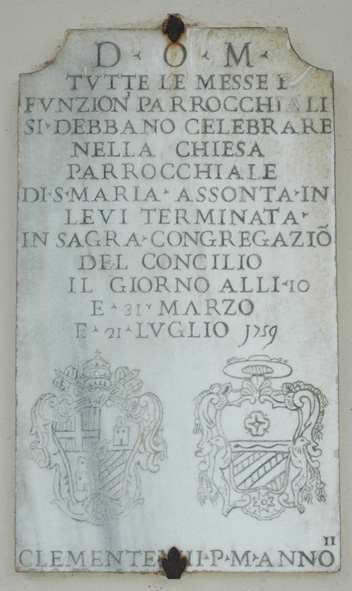 D · O · M ·
TVTTE LE MESSE E
FVNZION PARROCCHIALI
SI · DEBBANO CELEBRARE
NELLA CHIESA
PARROCCHIALE
DI · S · MARIA · ASSONTA · IN
LEVI TERMINATA ·
IN SAGRA · CONGREGAZIÕ
DEL CONCILIO
IL GIORNO ALLI · 10
E · 31 · MARZO
E · 21 · LVGLIO 1759
II
CLEMENTE P · M · ANNO